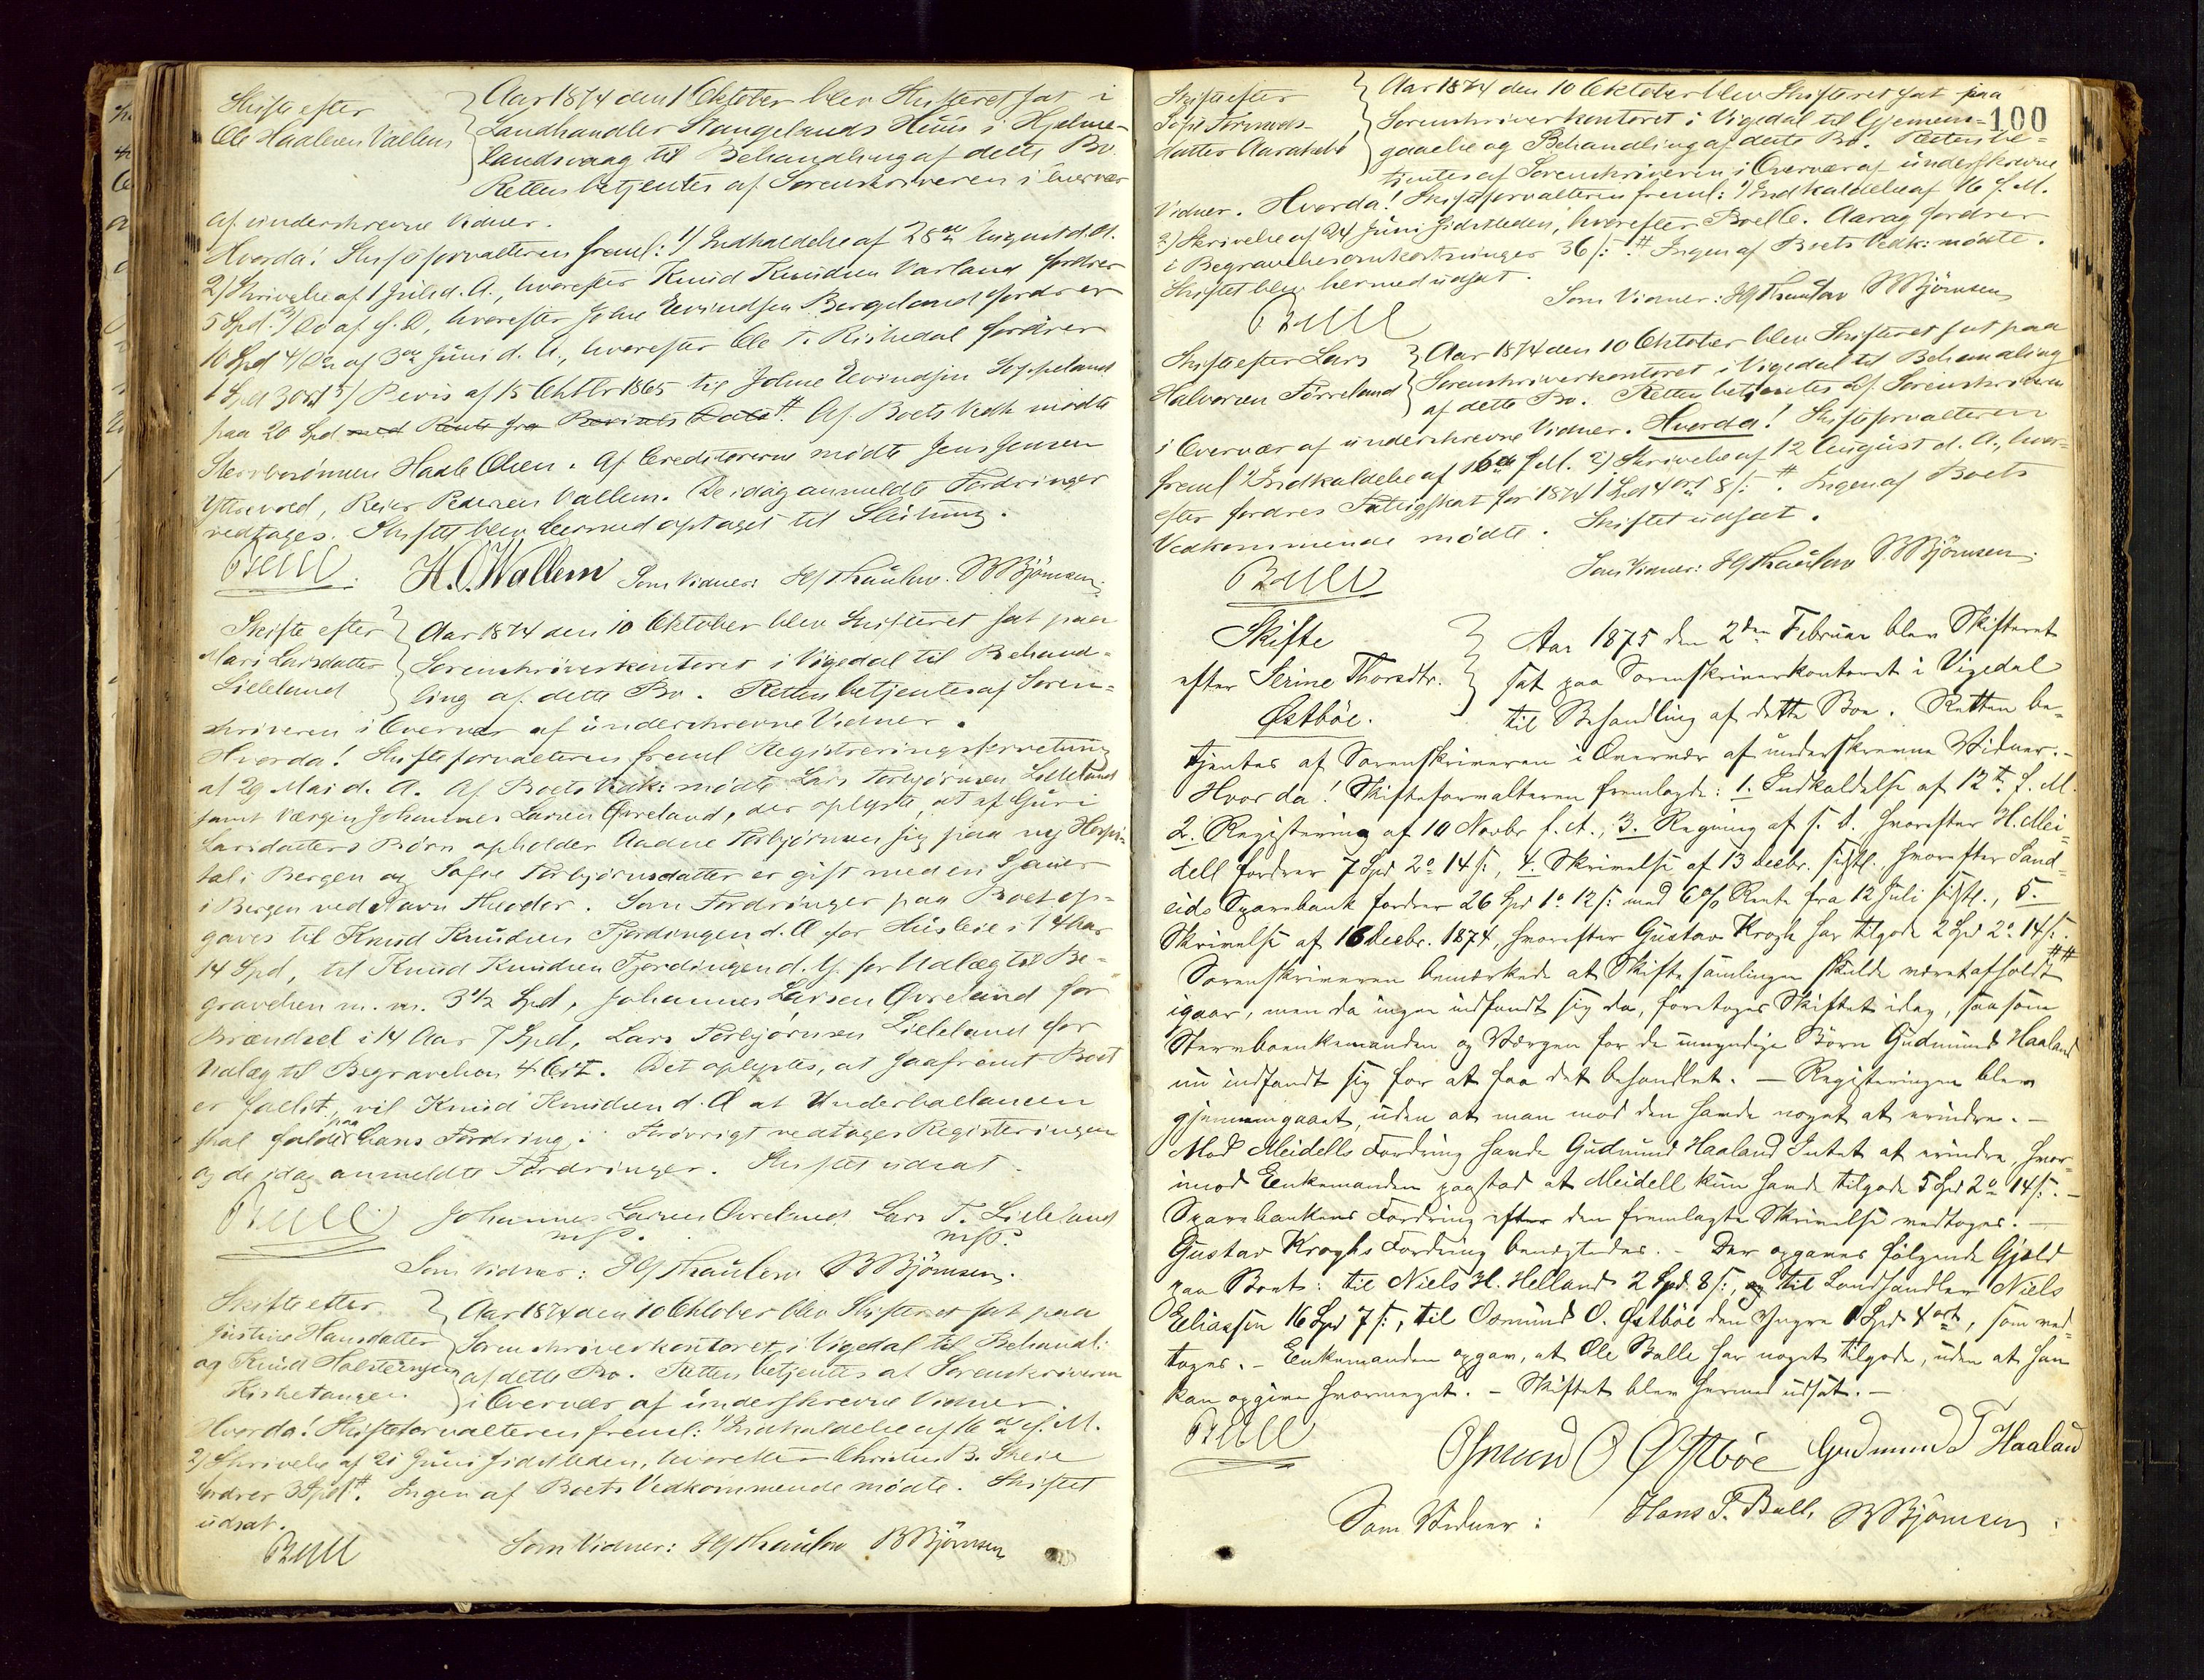 Skifte efter
Ole Haalesen Vallem
Aar 1874 den 1 Oktober blev Skifteret sat i
Landhandler Stangelands Huus i Hjelme-
landsvaag til Behandling af dette Bo.
Retten betjentes af Sorenskriveren i Overvær
af underskrevne Vidner.
Hvorda! Skifteforvalteren freml: 1) Indkaldelse af 28de August d. A.
2) Skrivelse af 1 Juli d. A., hvorefter Knud Knudsen Varland fordrer
5 Spd. 3) Do af s. D, hvorefter John Eevindsen Bergeland fordrer
10 Spd 4) Do af 3die Juni d. A., hvorefter Ole T. Riskedal fordrer
1 Spd 3 ort 5) Bevis af 15 Oktbr 1865 til Johne Evindsen
paa 20 Spd med Rente fra Bevisets Dato #. Af Boets Vedk mødte
Stervbosønnen Haale Olsen. Af Creditorerne mødte Jens Jensen
Yttrevold, Reier Pedersen Vallem. De idag anmeldte Fordringer
vedtages. Skiftet blev hermed optaget til Slutning.
Bull H. O. Wallem Som Vidner: HJ Thaulow. B Bjørnsen.
Skifte efter
Mari Larsdatter
Lilleland
Aar 1874 den 10 Oktober blev Skifteret sat paa
Sorenskriverkontoret i Vigedal til Behand-
ling af dette Bo. Retten betjentes af Soren-
skriveren i Overvær af underskrevne Vidner.
Hvorda! Skifteforvalteren freml Registreringsforretning
af 29 Mai d. A. Af Boets Vedk: mødte Lars Torbjørnsen Lilleland
samt Værgen Johannes Larsen Øvreland, der oplyste, at af Guri
Larsdatters Børn opholder Aadne Torbjørnsen sig paa nyt Hospi-
tal i Bergen og Sofie Torbjørnsdatter er gift med en
i Bergen ved Navn Theodor. Som Fordringer paa Boet op-
gaves til Knud Knudsen Fjordingen d. Æ for Husleie i 14 Aar
14 Spd, til Knud Knudsen Fjordingen d. Y. for Udlæg til Be-
gravelsen m. m. 3 1/2 Spd, Johannes Larsen Øvreland for
Brændsel i 14 Aar 7 Spd, Lars Torbjørnsen Lilleland for
Udlæg til Begravelsen 4 Ort. Det oplystes, at saafremt Boet
er fallit, vil Knud Knudsen d. Æ at Underballancen
skal falde paa hans Fordring. Forøvrigt vedtages Registeringen
og de idag anmeldte Fordringer. Skiftet udsat.
Bull Johannes Larsen Øvreland Lars T. Lilleland
m f P. m f P.
Som Vidner: HJ Thaulow B Bjørnsen.
Skifte efter
Justine Hansdatter
og Knud Halsteensen
Hisketangen.
Aar 1874 den 10 Oktober blev Skifteret sat paa
Sorenskriverkontoret i Vigedal til Behandl:
af dette Bo. Retten betjentes af Sorenskriveren
i Overvær af underskrevne Vidner.
Hvorda! Skifteforvalteren freml: 1) Indkaldelse af 16de f. M.
2) Skrivelse af 21 Juni sidstleden, hvorefter Christen B. Skeie
fordrer 3 Spd #. Ingen af Boets Vedkommende mødte. Skiftet
udsat.
Bull Som Vidner: HJ Thaulow B Bjørnsen
100
Skifte efter
Tormods-
datter
Aar 1874 den 10 Oktober blev Skifteret sat paa
Sorenskriverkontoret i Vigedal til Gjennem-
gaaelse og Behandling af dette Bo. Retten be-
tjentes af Sorenskriveren i Overvær af underskrevne
Vidner. Hvorda! Skifteforvalteren freml: 1) Indkaldelse af 16 f. M.
2) Skrivelse af 24 Juni sidstleden, hvorefter Poul C. Aarag fordrer
i Begravelsesomkostninger 36 s: #. Ingen af Boets Vedk: mødte.
Skiftet blev hermed udsat.
Som Vidner: HJ Thaulow B Bjørnsen
Bull
Skifte efter Lars
Halvorsen Førreland
Aar 1874 den 10 Oktober blev Skifteret sat paa
Sorenskriverkontoret i Vigedal til Behandling
af dette Bo. Retten betjentes af Sorenskriveren
i Overvær af underskrevne Vidner. Hvorda! Skifteforvalteren
freml 1) Indkaldelse af 16de f. M. 2) Skrivelse af 12 August d. A., hvor-
efter fordres Fattigskat for 1874 1 Spd 4 ort 8 s: #. Ingen af Boets
Vedkommende mødte. Skiftet udsat.
Som Vidner: HJ Thaulow B Bjørnsen.
Bull
Skifte
efter Serine Thorsdtr.
Østbøe.
Aar 1875 den 2den Februar blev Skifteret
sat paa Sorenskriverkontoret i Vigedal
til Behandling af dette Boe. Retten be-
tjentes af Sorenskriveren i Overvær af underskrevne Vidner.-
Hvor da! Skifteforvalteren fremlagde: 1. Indkaldelse af 12te f. M.
2. Registering af 10 Novbr f. A., 3. Regning af s. D. hvorefter H. Mei-
dell fordrer 7 Spd 2 o 14 s:, 4. Skrivelse af 13 Decbr. sidstl. hvorefter Sand-
eids Sparebank fordrer 26 Spd 1 o 12 s: med 6 % Rente fra 12 Juli sidstl., 5.
Skrivelse af 16 Decbr. 1874, hvorefter Gustav Krogh har tilgode 2 Spd 2 o 14 s:. ##
Sorenskriveren bemærkede at Skiftesamlingen skulde været afholdt
igaar, men da ingen indfandt sig da, foretages Skiftet idag, saasom
Stervboenkemanden og Værgen for de umyndige Børn Gudmund Haaland
nu indfandt sig for at faa det behandlet. — Registeringen blev
gjennemgaaet, uden at man mod den havde noget at erindre. —
Mod Meidells Fordring havde Gudmund Haaland Intet at erindre, hvor-
imod Enkemanden paastod at Meidell kun havde tilgode 5 Spd 2 o 14 s:. —
Sparebankens Fordring efter den fremlagte Skrivelse vedtoges. —
Gustav Kroghs Fordring benegtedes. - Der opgaves følgende Gjæld
paa Boet: til Niels H. Helland 2 Spd. 8 s:, og til Landhandler Niels
Eeliassen 16 Spd 7 s:, til Osmund O. Østbøe den Yngre 1 Spd 4 ort, som ved-
toges. - Enkemanden opgav, at Ole Balle har noget tilgode, uden at han
kan opgive hvormeget. - Skiftet blev hermed udsat. —
Bull Osmund O Østbøe Gudmund T Haaland
Som Vidner: Hans P. Ball, B Bjørnsen.